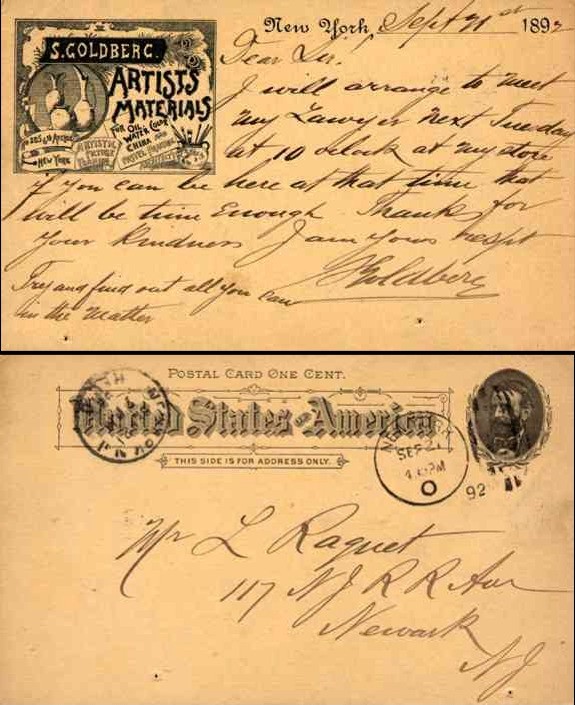 S. GOLDBERG.
ARTISTS
MATERIALS
FOR OIL
WATER COLOR
CHINA AND
PASTEL PAINTING
285 6th AVENUE
NEW YORK
ARTISTIC
PICTURE
FRAMING
New York, Sept 21st 1892
Dear Sir,
I will arrange to meet
my Lawyer next Tuesday
at 10 oclock at my store
if you can be here at that time that
will be time Enough. Thanks for
your kindness I am yours respt
S Goldberg
Try and find out all you can
in the matter
POSTAL CARD ONE CENT.
United States of America
THIS SIDE IS FOR ADDRESS ONLY.
SEP 21
PM
O
92
Mr L Raquet
117 N J R R Ave
Newark
N J